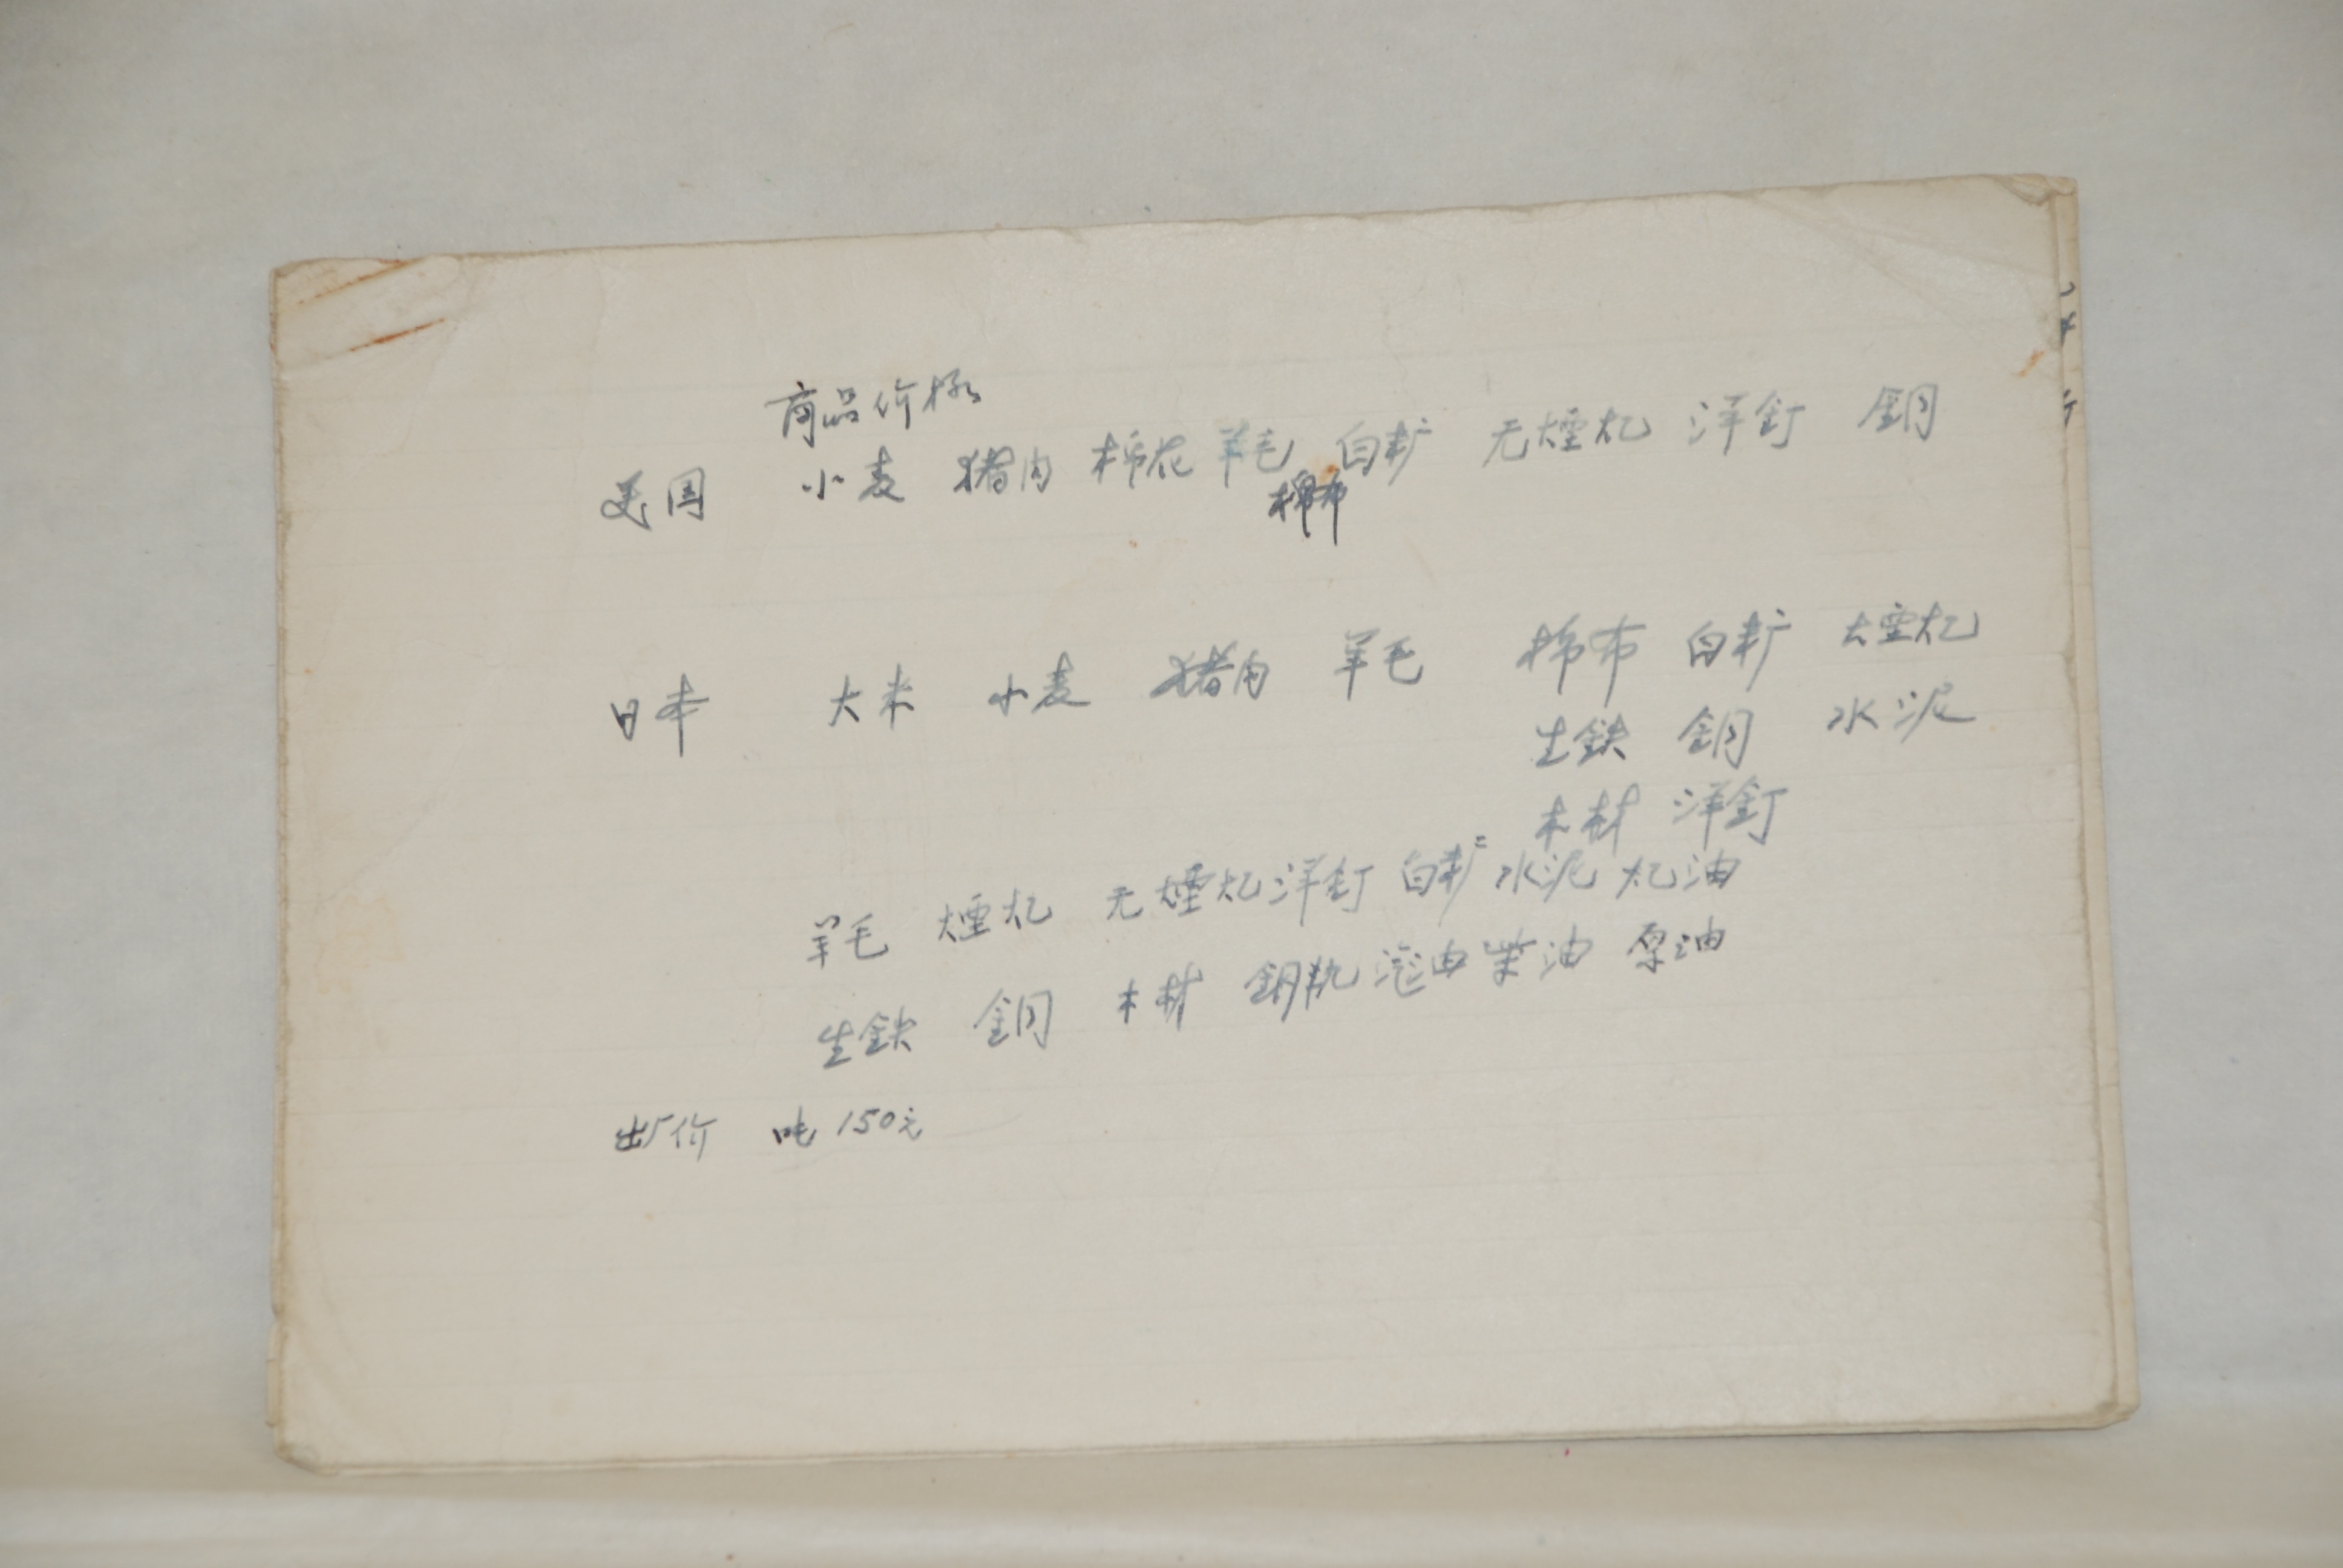 商品价格
美国 小麦 猪肉 棉花 羊毛 白糖 无煙煤 洋釘 鋼
棉布
日本 大米 小麦 猪肉 羊毛 棉布 白糖 煙煤
生鉄 鋼 水泥
木材 洋釘
羊毛 煙煤 无煙煤 洋釘 白糖 水泥 煤油
生鉄 鋼 木材 鋼軌 汽油 柴油 原油
出厂价 吨 150元